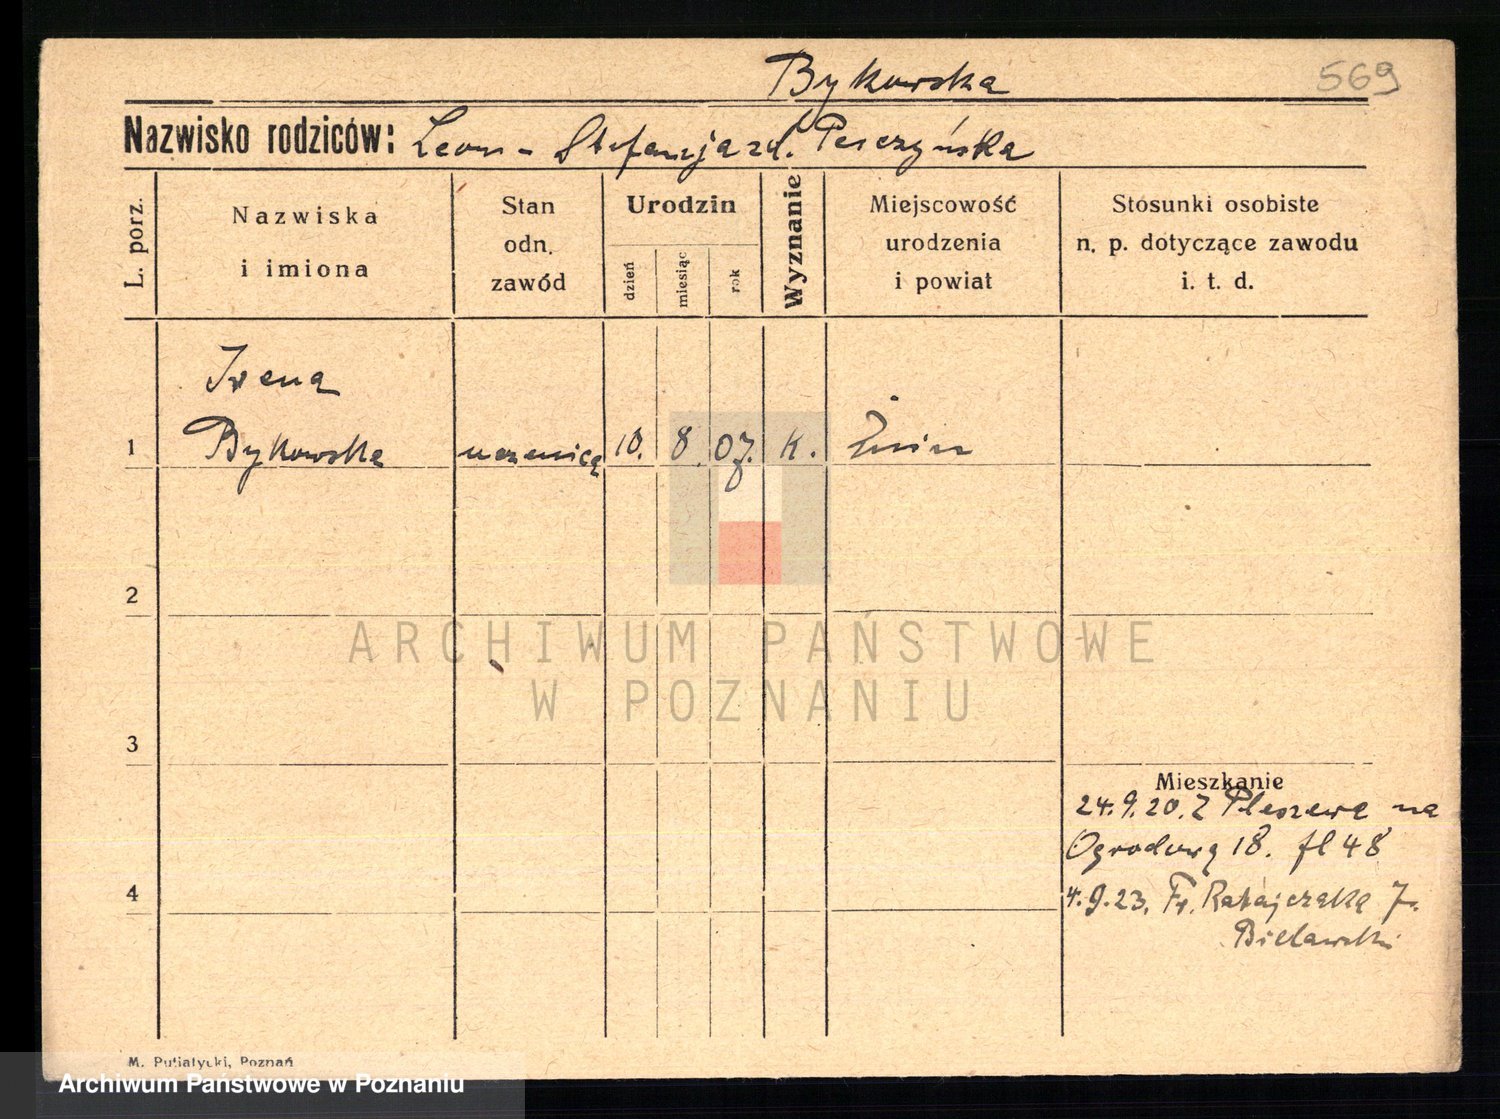 Bykowska
569
Nazwisko rodziców: Leon - Stefanja zd. Perczyńska
L. porz.
Nazwiska
i imiona
Stan
odn.
zawód
Urodzin
dzień
miesiąc
rok
Wyznanie
Miejscowość
urodzenia
i powiat
Stosunki osobiste
n. p. dotyczące zawodu
i. t. d.
Irena
1 Bykowska uczenica 10. 8. 07. k. Żnin
2
ARCHIWUM PAŃSTWOWE
W POZNANIU
3
Mieszkanie
24.9.20. Z Pleszewa na
Ogrodową 18. fl 48
4
4.9.23. Fr. Ratajczaka 7.
Bielawski
M. Putiatycki, Poznań
Archiwum Państwowe w Poznaniu